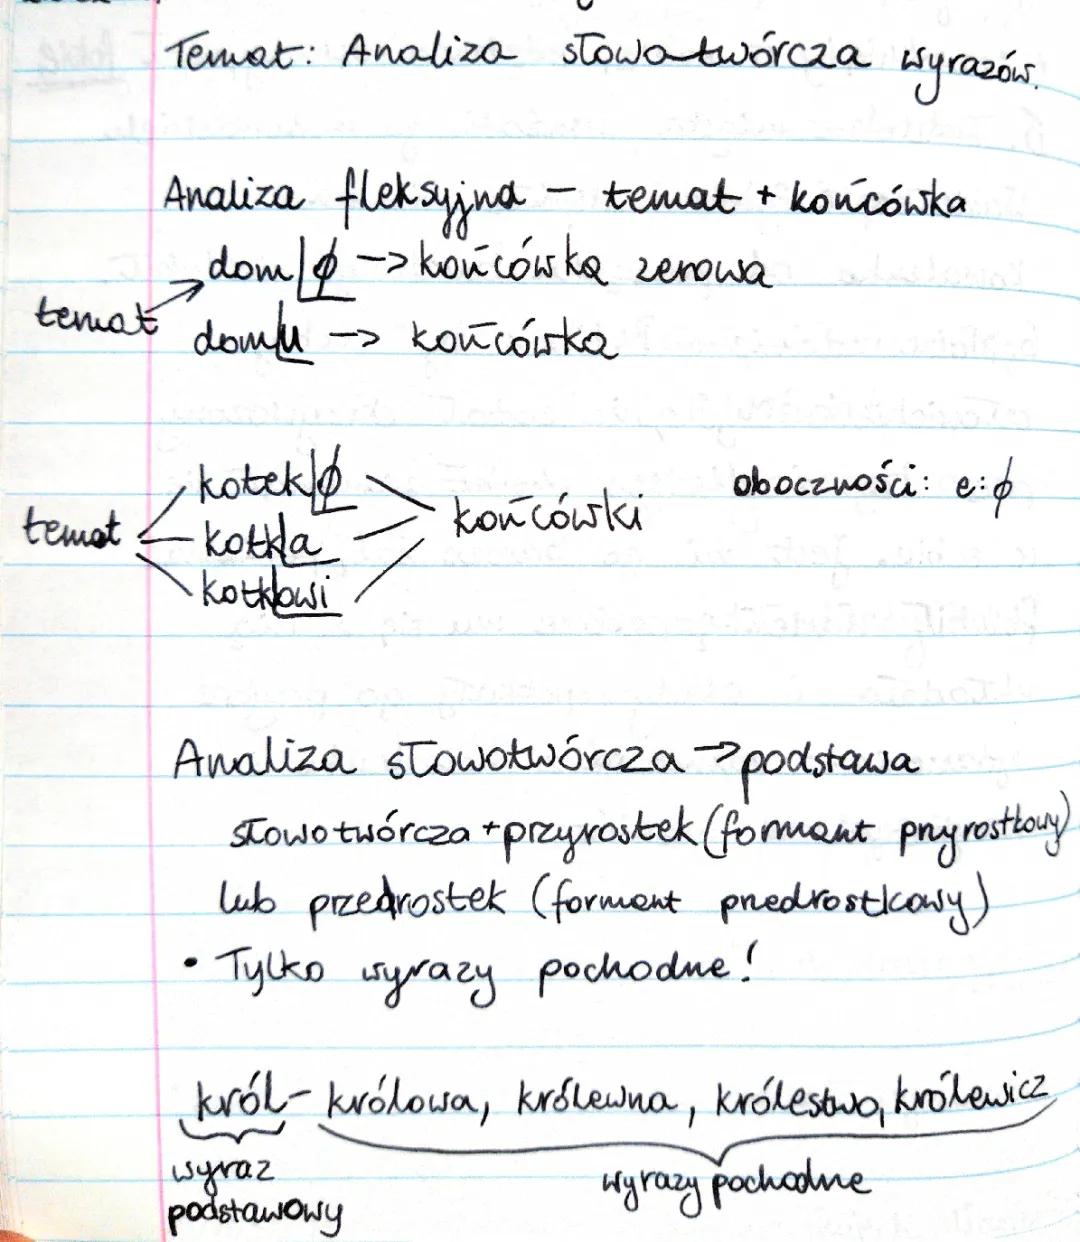 Temat: Analiza słowotwórcza wyrazów.
Analiza fleksyjna – temat + końcówka
dom|ø -> końcówka zerowa
temat
dom|u -> końcówka
kotek|ø
oboczności: e:ø
temat
końcówki
kotk|a
kotk|owi
Analiza słowotwórcza -> podstawa
słowotwórcza + przyrostek (formant przyrostkowy)
lub przedrostek (formant przedrostkowy)
• Tylko wyrazy pochodne!
król - królowa, królewna, królestwo, królewicz
wyraz
podstawowy
wyrazy pochodne